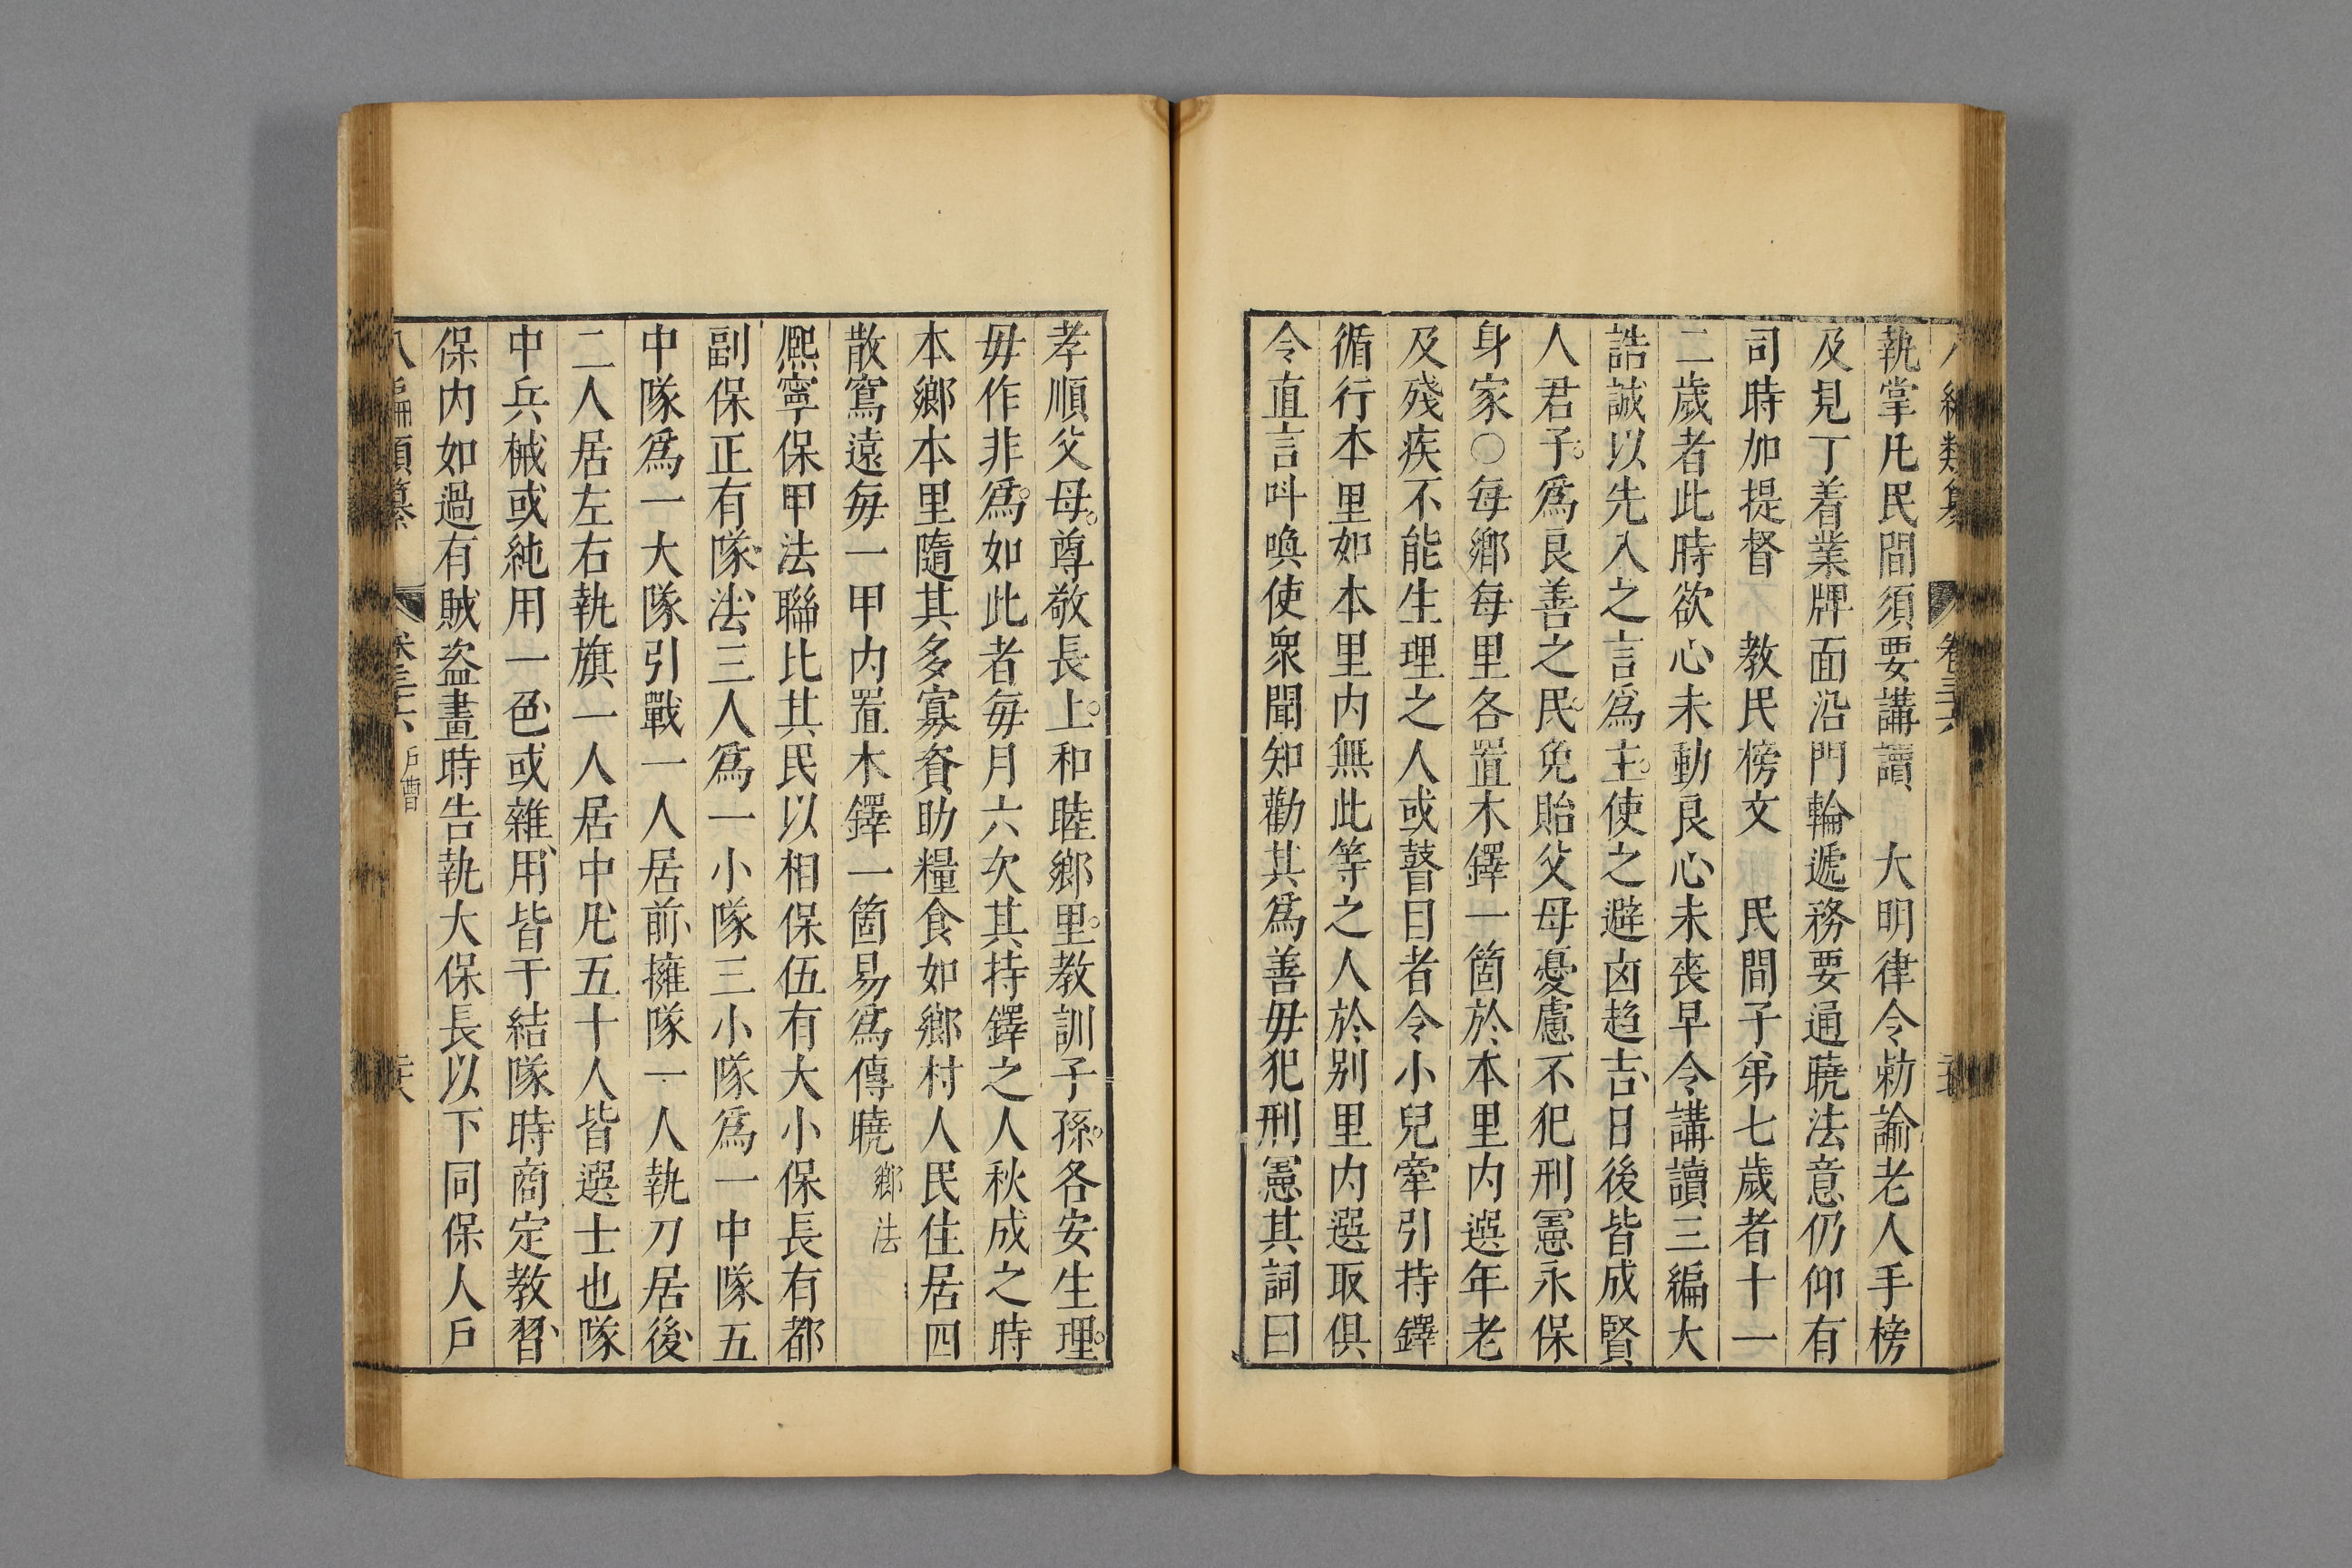 八編類纂 卷三十六
執掌凡民間須要講讀 大明律令勑諭老人手榜
及見丁着業牌面沿門輪遞務要通曉法意仍仰有
司時加提督 教民榜文 民間子弟七歲者十一
二歲者此時欲心未動良心未喪早令講讀三編大
誥誠以先入之言爲主使之避凶趋吉日後皆成賢
人君子爲良善之民免貽父母憂慮不犯刑憲永保
身家〇每鄉每里各置木鐸一箇於本里内選年老
及殘疾不能生理之人或瞽目者令小兒牽引持鐸
循行本里如本里内無此等之人於别里内選取俱
令直言呌喚使衆聞知勸其爲善毋犯刑憲其詞曰
孝順父母尊敬長上和睦鄉里教訓子孫各安生理
毋作非爲如此者每月六次其持鐸之人秋成之時
本鄉本里隨其多寡資助糧食如鄉村人民住居四
散窵遠每一甲内置木鐸一箇易爲傳曉 鄉法
熈寧保甲法聯比其民以相保伍有大小保長有都
副保正有隊法三人爲一小隊三小隊爲一中隊五
中隊爲一大隊引戰一人居前擁隊一人執刀居後
二人居左右執旗一人居中凡五十人皆選士也隊
中兵械或純用一色或雜用皆于結隊時商定教習
保内如過有賊盗畫時告執大保長以下同保人戶
八編類纂 卷三十六 戶曹